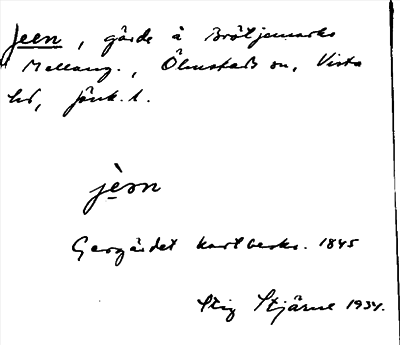 Jeen, gärde å Bråtjemarks
Mellang., Ölmstads sn, Vista
hd, Jönk. l.
jè̱sn
Gergärdet kartbeskr. 1845
Stig Stjärne 1934.